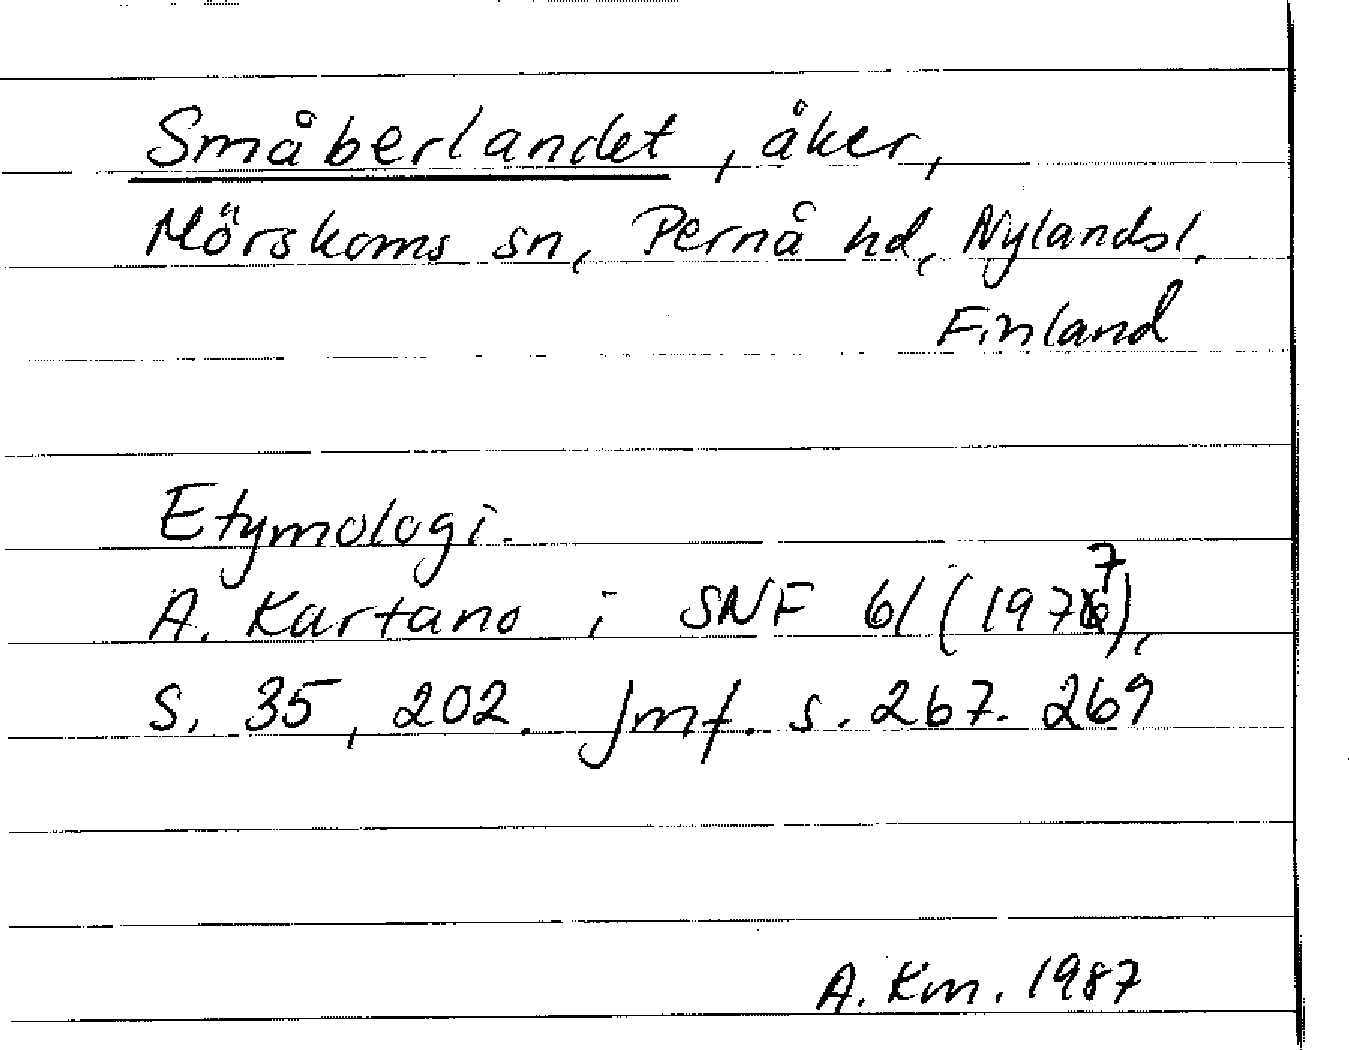 Småberlandet, åker,
Mörskoms sn, Pernå hd, Nylands l.
Finland
Etymologi.
A. Kartano i SNF 61 (1977),
s. 35, 202. Jmf. s. 267. 269
A. Km. 1987